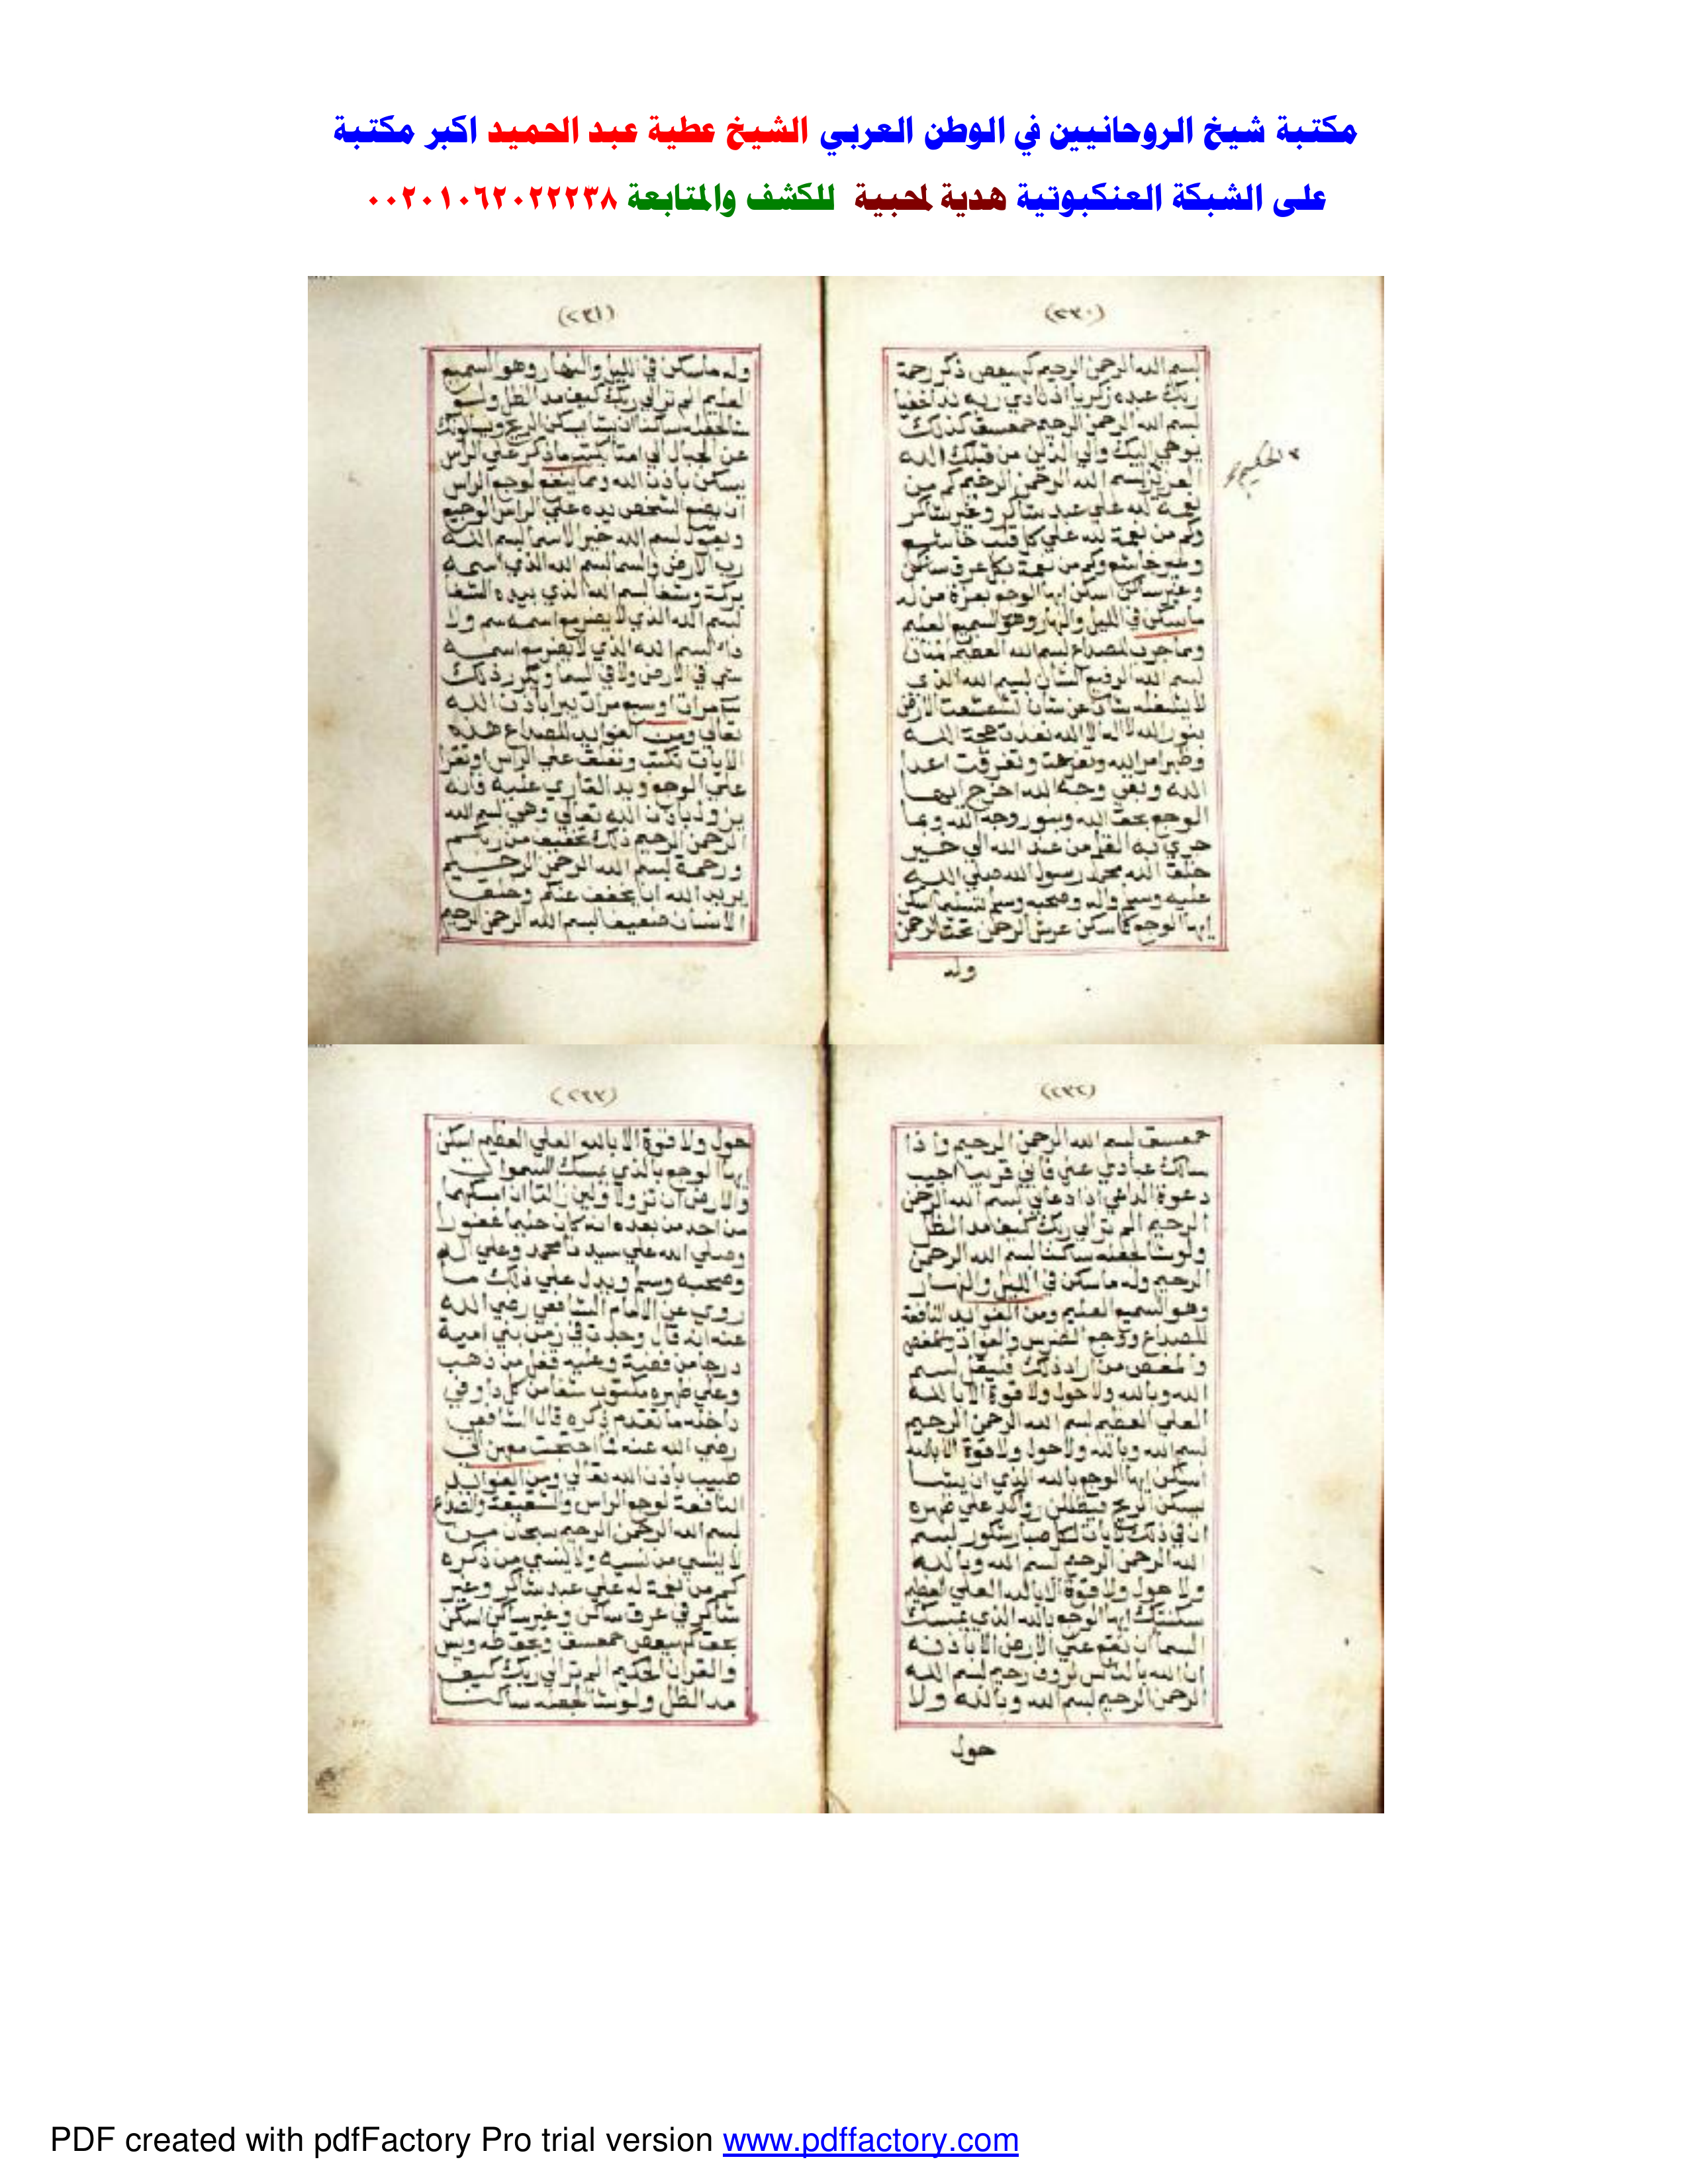 مكتبة شيخ الروحانيين في الوطن العربي الشيخ عطية عبد الحميد اكبر مكتبة
على الشبكة العنكبوتية هدية لمحبية للكشف والمتابعة ٠٠٢٠١٠٦٢٠٢٢٢٣٨
(٢٣٠)
بسم الله الرحمن الرحيم كهيعص ذكر رحمة
ربك عبده زكريا اذ نادي ربه ندا خفيا
بسم الله الرحمن الرحيم حمعسق كذلك
يوحي اليك والي الذين من قبلك الله
العزيز بسم الله الرحمن الرحيم كم من
الحكيم
نعمة لله علي عبد شاكر وغير شاكر
وكم من نعمة لله علي كل قلب خاشع
وغير خاشع وكم من نعمة بكل عرق ساكن
وغير ساكن اسكن ايها الوجع بعزة من له
ما سكن في الليل والنهار وهو السميع العليم
ومما جرب للصداع بسم الله العظيم المنان
بسم الله الرفيع الشان بسم الله الذي
لا يشغله شان عن شان تشعشعت الارض
بنور الله لا اله الا الله نفدت حجة الله
وظهر امر الله وتفرقت اعدا
الله وبقي وجه الله اخرج ايها
الوجع بحق الله وبنور وجه الله وبما
جري به القلم من عند الله الي خير
خلق الله محمد رسول الله صلي الله
عليه وسلم واله وصحبه وسلم تسليما اسكن
ايها الوجع كما سكن عرش الرحمن تحت الرحمن
وله
(٢٣١)
وله ما سكن في الليل والنهار وهو السميع
العليم الم تر الي ربك كيف مد الظل ولو
شا لجعله ساكنا ان يشا يسكن الريح ويسالونك
عن الجبال الي امتا يكتب ما ذكر علي الراس
يسكن باذن الله ومما ينفع لوجع الراس
ان يضع الشخص يده علي الراس الوجيع
ويقول بسم الله خير الاسما بسم الله
رب الارض والسما بسم الله الذي اسمه
بركة وشفا بسم الله الذي بيده الشفا
بسم الله الذي لا يضر مع اسمه سم ولا
دا بسم الله الذي لا يضر مع اسمه
شي في الارض ولا في السما ويكرر ذلك
مرات او سبع مرات يبرا باذن الله
تعالي ومن الفوايد للصداع هذه
الايات تكتب وتعلق علي الراس او تقرا
علي الوجع ويد القاري عليه فانه
يزول باذن الله تعالي وهي بسم الله
الرحمن الرحيم ذلك تخفيف من ربكم
ورحمة بسم الله الرحمن الرحيم
يريد الله ان يخفف عنكم وخلق
الانسان ضعيفا بسم الله الرحمن الرحيم
(٢٣٢)
حمعسق بسم الله الرحمن الرحيم واذا
سالك عبادي عني فاني قريب اجيب
دعوة الداعي اذا دعاني بسم الله الرحمن
الرحيم الم تر الي ربك كيف مد الظل
ولو شا لجعله ساكنا بسم الله الرحمن
الرحيم وله ما سكن في الليل والنهار
وهو السميع العليم ومن الفوايد النافعة
للصداع ووجع الضرس والفواد
والمغص من اراد ذلك فليقل بسم
الله وبالله ولا حول ولا قوة الا بالله
العلي العظيم بسم الله الرحمن الرحيم
بسم الله وبالله ولا حول ولا قوة الا بالله
اسكن ايها الوجع بالله الذي ان يشا
يسكن الريح فيظللن رواكد علي ظهره
ان في ذلك لايات لكل صبار شكور بسم
الله الرحمن الرحيم بسم الله وبالله
ولا حول ولا قوة الا بالله العلي العظيم
سكنتك ايها الوجع بالله الذي يمسك
السما ان تقع علي الارض الا باذنه
ان الله بالناس لروف رحيم بسم الله
الرحمن الرحيم بسم الله وبالله ولا
حول
(٢٣٣)
حول ولا قوة الا بالله العلي العظيم اسكن
ايها الوجع بالذي يمسك السموات
والارض ان تزولا ولين زالتا ان امسكهما
من احد من بعده انه كان حليما غفورا
وصلي الله علي سيدنا محمد وعلي اله
وصحبه وسلم ويدل علي ذلك ما
روي عن الامام الشافعي رضي الله
عنه انه قال وجدت في زمن بني امية
درجا من فضة وعليه قفل من ذهب
وعلي ظهره مكتوب شفا من كل دا وفي
داخله ما تقدم ذكره قال الشافعي
رضي الله عنه فما احتجت معهن الي
طبيب باذن الله تعالي ومن الفوايد
النافعة لوجع الراس والشقيقة والصداع
بسم الله الرحمن الرحيم سبحان من
لا ينسي من نسيه ولا ينسي من ذكره
كم من نعمة لله علي عبد شاكر وغير
شاكر في عرق ساكن وغير ساكن اسكن
بحق كهيعص حمعسق وبحق طه ويس
والقران الحكيم الم تر الي ربك كيف
مد الظل ولو شا لجعله ساكنا
PDF created with pdfFactory Pro trial version www.pdffactory.com